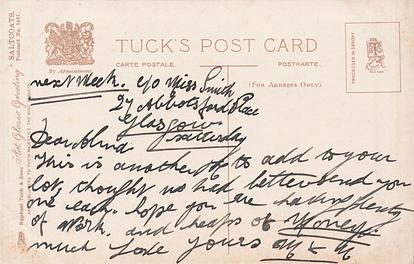 TUCK'S POST CARD
CARTE POSTALE.
POSTKARTE.
(FOR ADDRESS ONLY)
By Appointment
"SALTCOATS."
Postcard No. 1487.
Raphael Tuck & Sons'
PROCESSED IN SAXONY
next week. c/o Miss Smith
27 Abbotsford Place
Glasgow
Saturday
Dear
This is another P.C to add to your
lot, thought we had better send you
one each. hope you are having plenty
of work. and heaps of Money.
much love yours